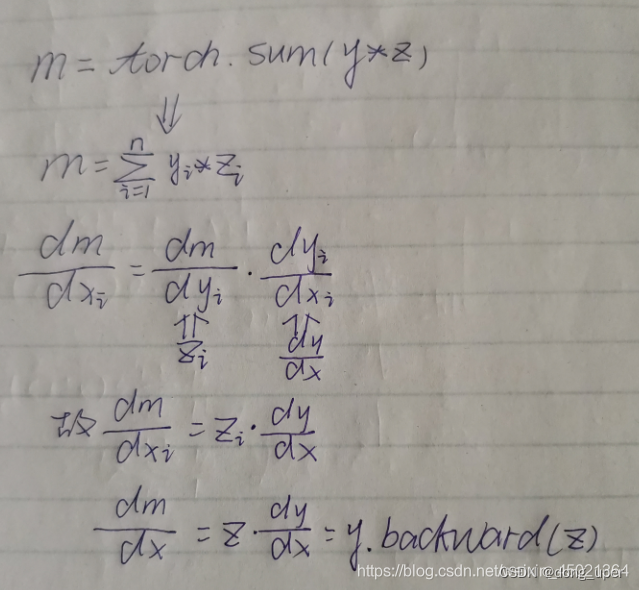 m = torch.sum(y*z)
⇓
m = ∑_{i=1}^{n} y_i * z_i
dm/dx_i = dm/dy_i · dy_i/dx_i
⇑ ⇑
z_i dy/dx
故 dm/dx_i = z_i · dy/dx
dm/dx = z · dy/dx = y.backward(z)
https://blog.csdn.net/
CSDN @dong_uper
45021364